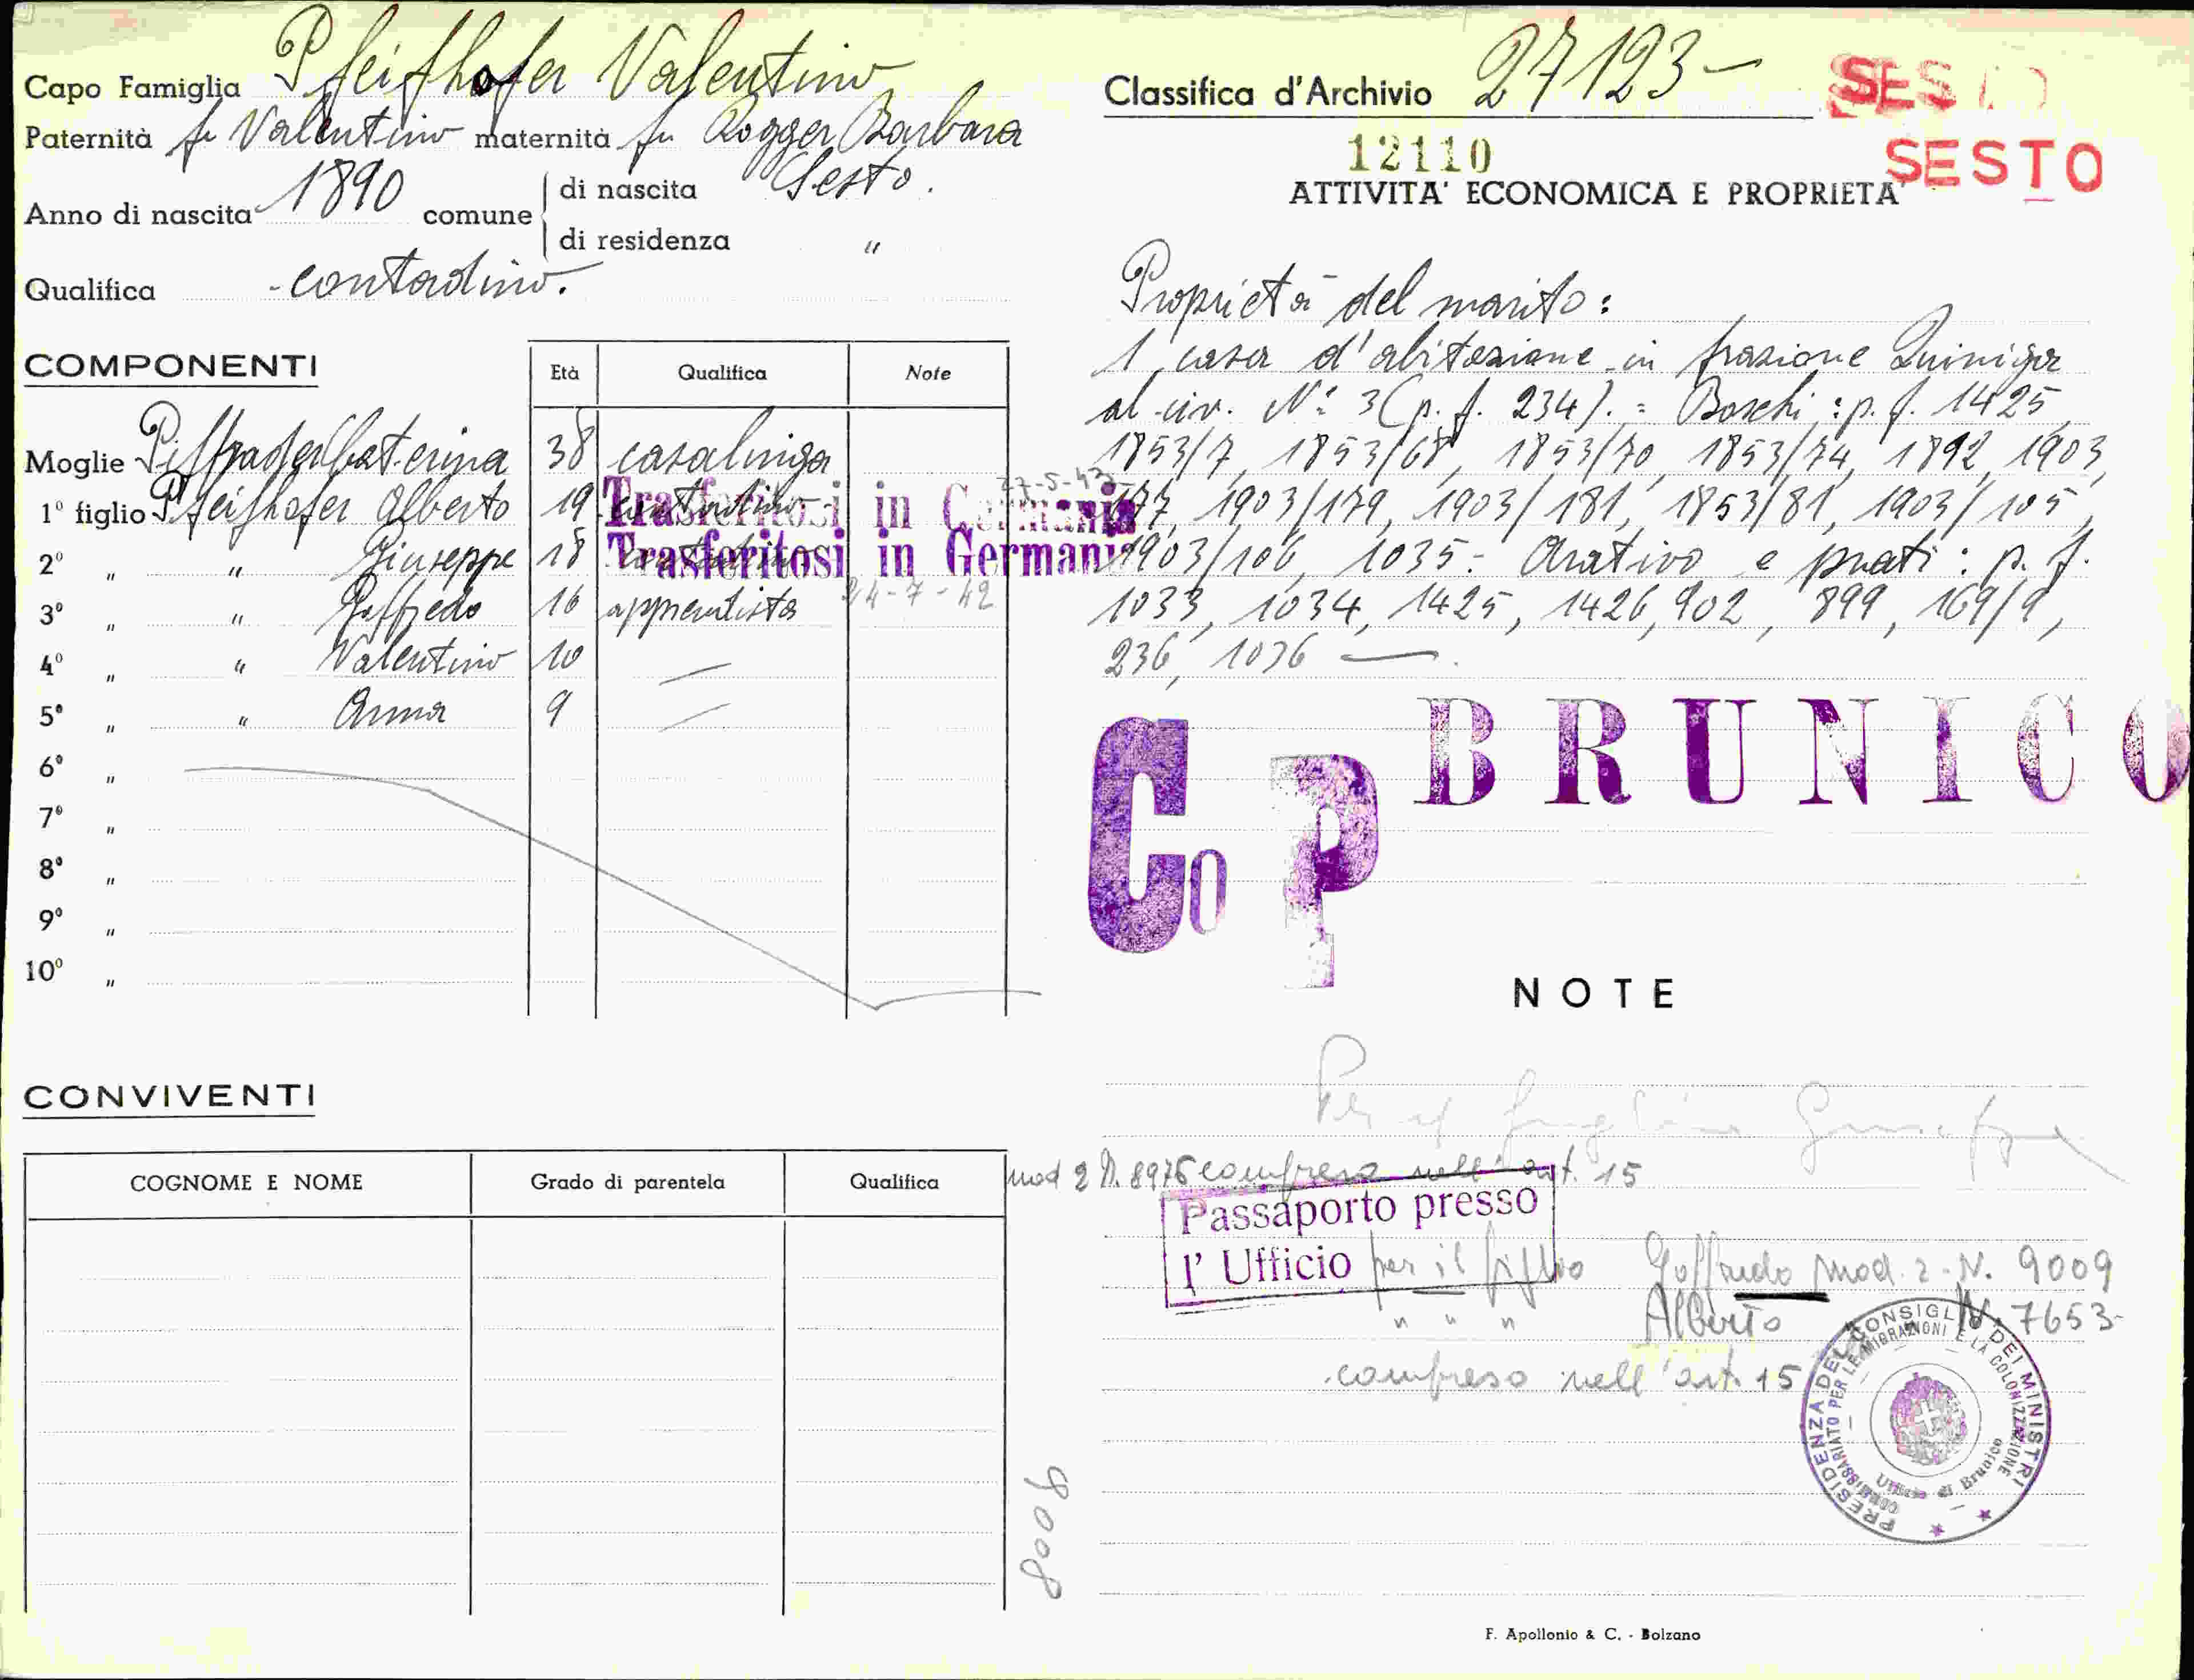 Capo Famiglia Pfeifhofer Valentino
Paternità fu Valentino maternità fu Rogger Barbara
Anno di nascita 1890 comune di nascita Sesto.
di residenza "
Qualifica - contadino.
COMPONENTI
Età Qualifica Note
Moglie Piffrader Caterina 38 casalinga
27-5-43
1º figlio Pfeifhofer Alberto 19 contadino
Trasferitosi in Germania
2º " " Giuseppe 18
Trasferitosi in Germania
24-7-42
3º " " Goffredo 16 apprendista
4º " " Valentino 10 —
5º " " Anna 9 —
6º "
7º "
8º "
9º "
10º "
CONVIVENTI
COGNOME E NOME Grado di parentela Qualifica
8006
Classifica d'Archivio 27123-
SESTO
12110
SESTO
ATTIVITA' ECONOMICA E PROPRIETA'
Proprietà del marito:
1 casa d'abitazione in frazione
al civ. Nº 3 (p. f. 234). = Boschi: p. f. 1425,
1853/7, 1853/68, 1853/70, 1853/74, 1892, 1903,
177, 1903/179, 1903/181, 1853/81, 1903/105,
1903/106, 1035.- Arativo e prati: p. f.
1033, 1034, 1425, 1426, 902, 899, 169/9,
236, 1036 —.
BRUNICO
Co P
NOTE
Giuseppe
mod 2 N. 8976 compreso nell'art. 15
Passaporto presso
l'Ufficio per il figlio Goffredo mod. 2 - N. 9009
" " " Alberto N. 7653-
compreso nell'art. 15
PRESIDENZA DEL CONSIGLIO DEI MINISTRI
COMMISSARIATO PER LE MIGRAZIONI E LA COLONIZZAZIONE
Ufficio di Brunico
F. Apollonio & C. - Bolzano